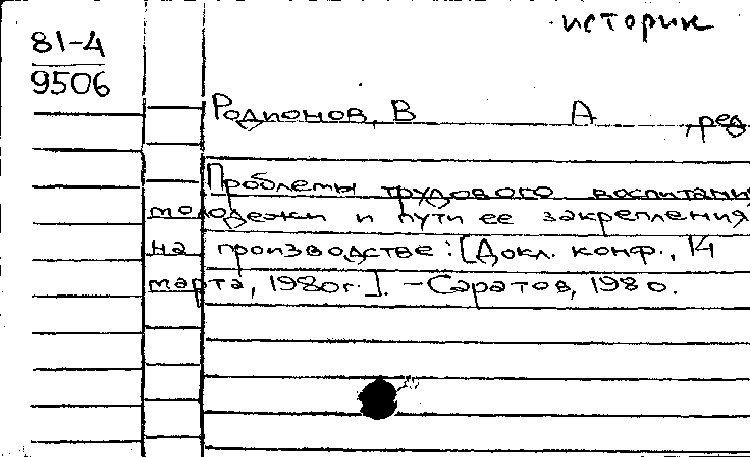 историк
81-4
9506
Родионов, В А , ред
Проблемы трудового воспитани
молодежи и пути ее закрепления
на производстве: [Докл. конф., 14
марта, 1980г.]. - Саратов, 1980.